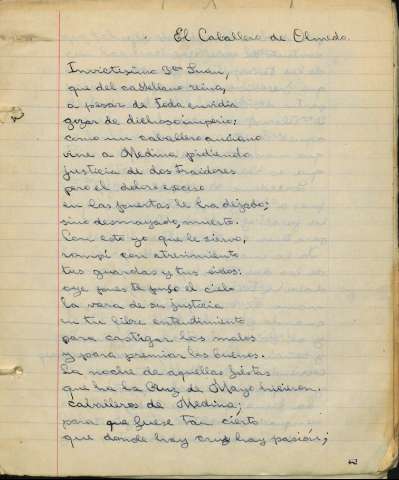 El Caballero de Olmedo.
Invictísimo Don Juan,
que del castellano reina,
a pesar de toda envidia
gozas de dichoso imperio;
como un caballero anciano
vine a Medina pidiendo
justicia de dos traidores
pero el dolor
en las puertas le ha dejado;
sino desmayado, muerto.
Con esto yo que le sirvo,
rompí con atrevimiento
tus guardas y tus oídos:
oye pues te puso el cielo
la vara de su justicia
en tu libre entendimiento
para castigar los malos
y para premiar los buenos.
La noche de aquellas fiestas
que ha la Cruz de Mayo hicieron.
caballeros de Medina;
para que fuese tan cierto
que donde hay cruz hay pasión;